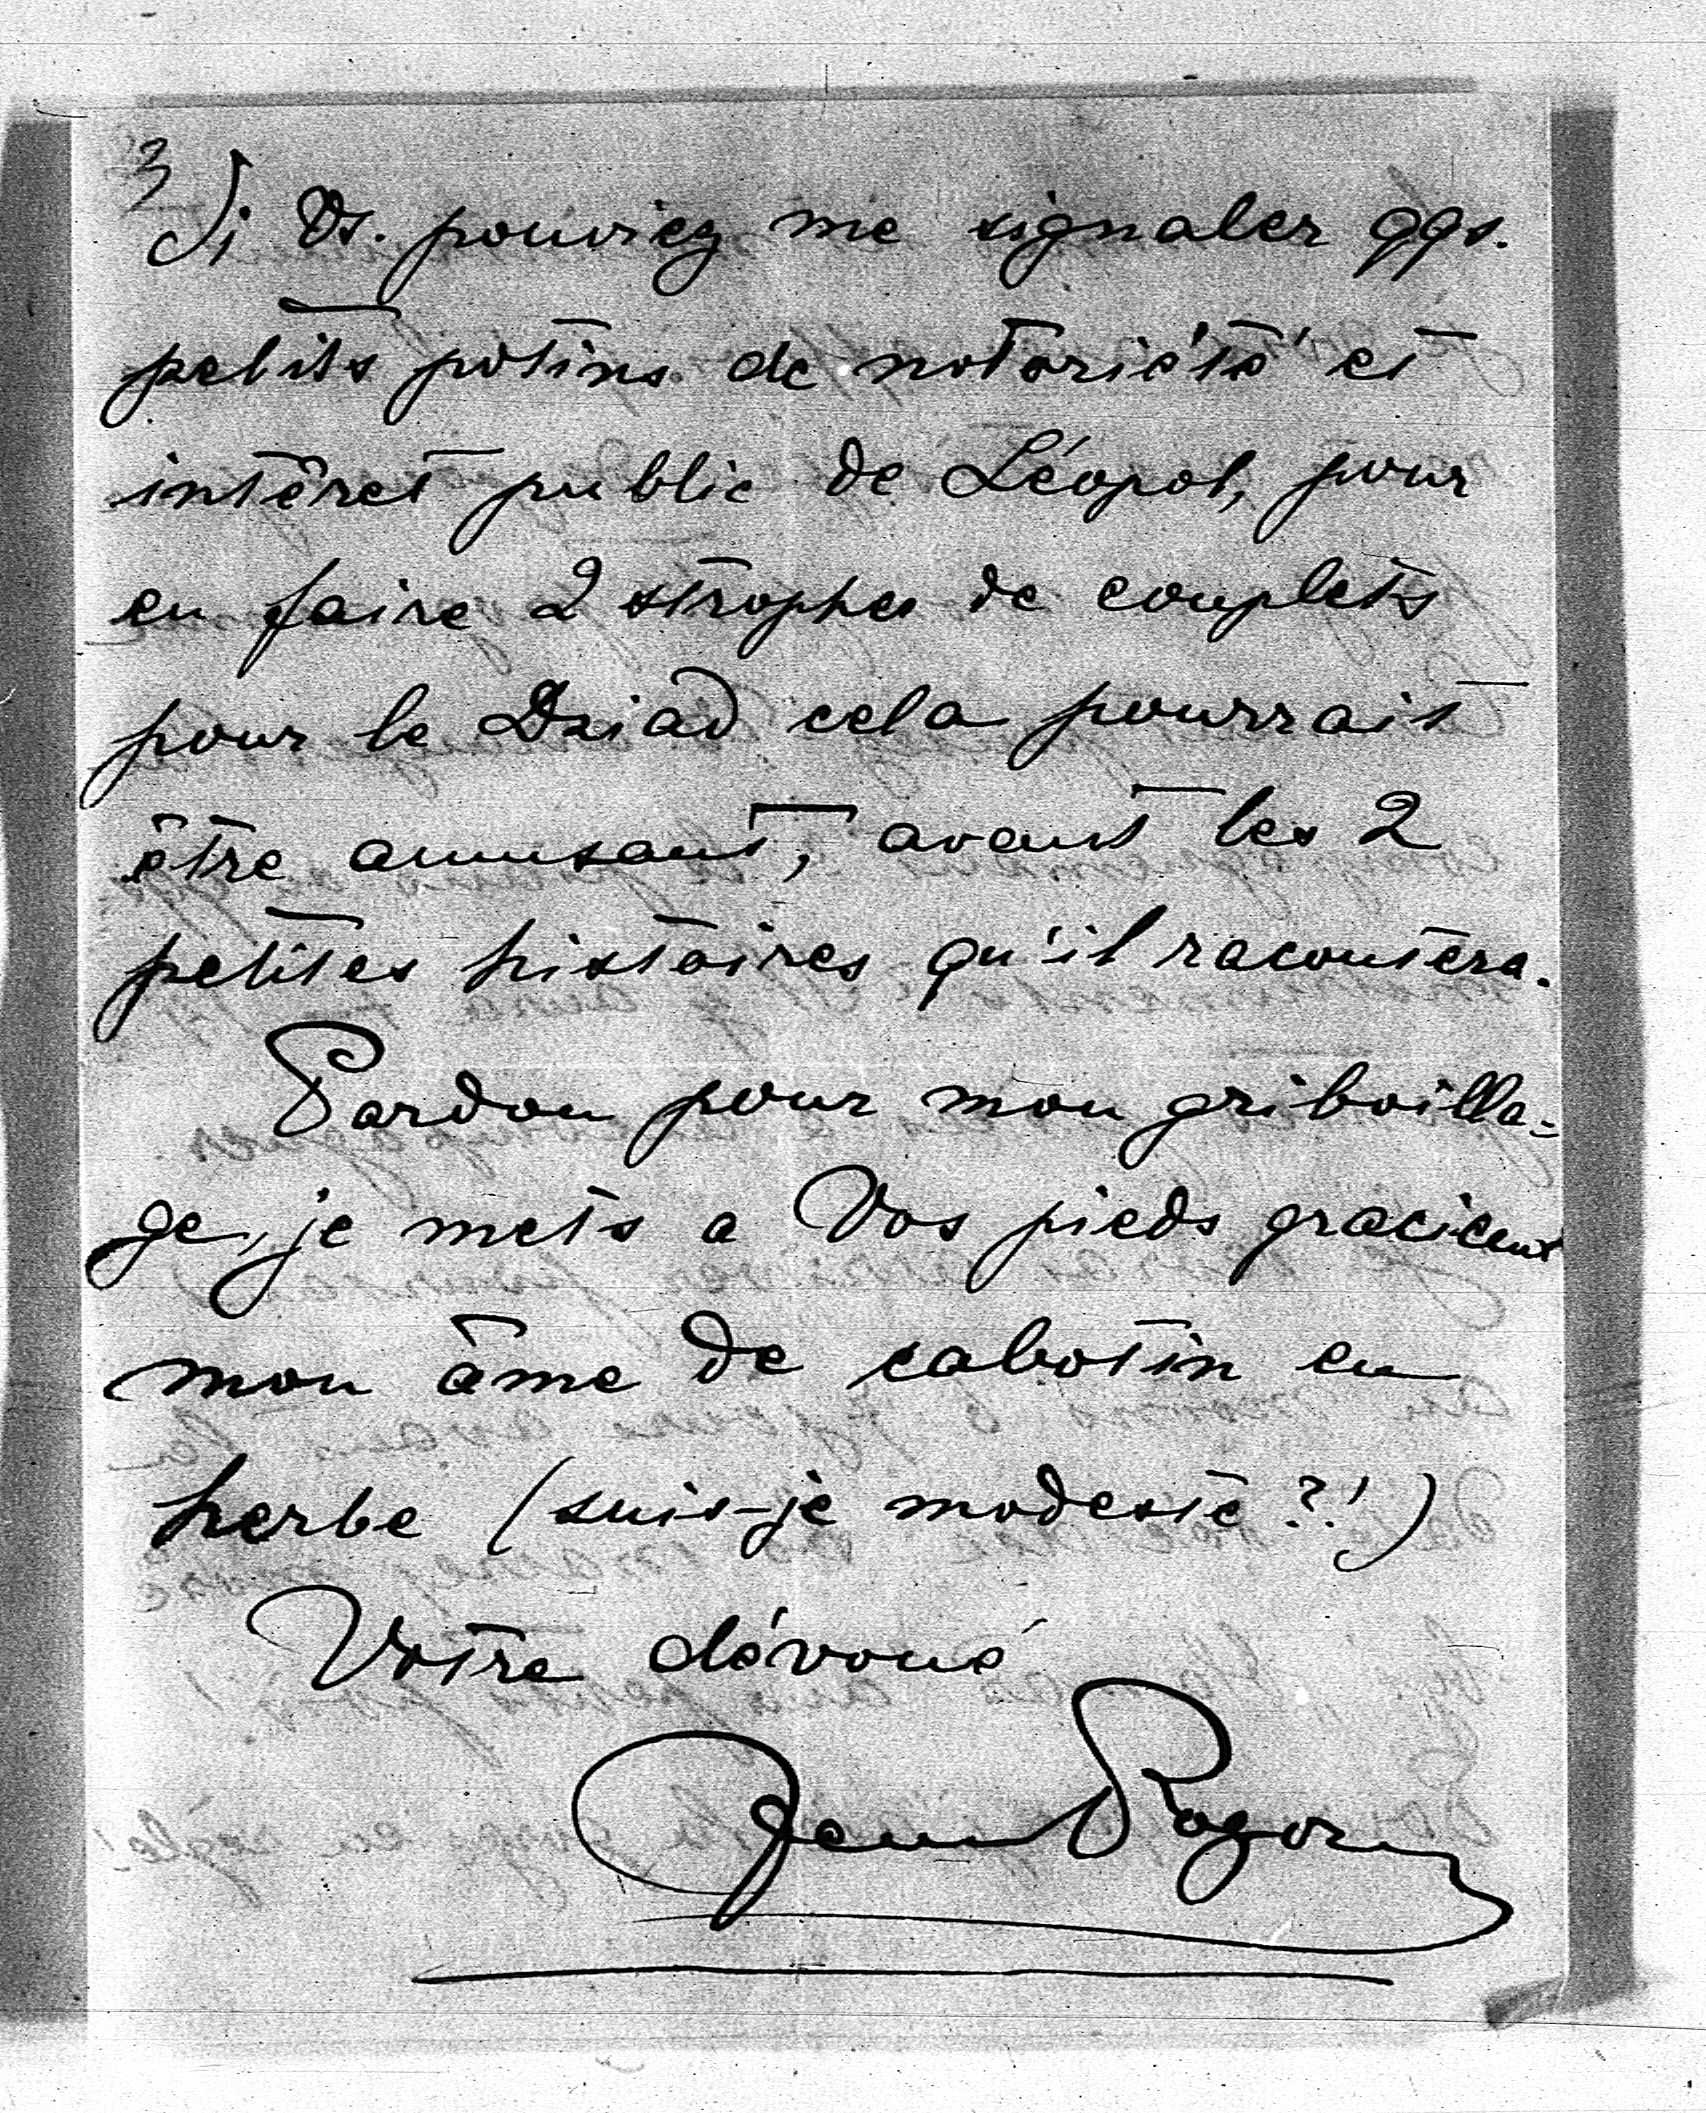 3
Si Vs. pouviez me signaler qqs.
petits potins de notoriété et
intêret public de Léopol, pour
en faire 2 strophes de couplets
pour le Dziad cela pourrait
être amusant, avant les 2
petites histoires qu'il racontera.
Pardon pour mon griboilla=
ge, je mets a Vos pieds gracieux
mon âme de cabotin en
herbe (suis-je modeste ?!)
Votre dévoué